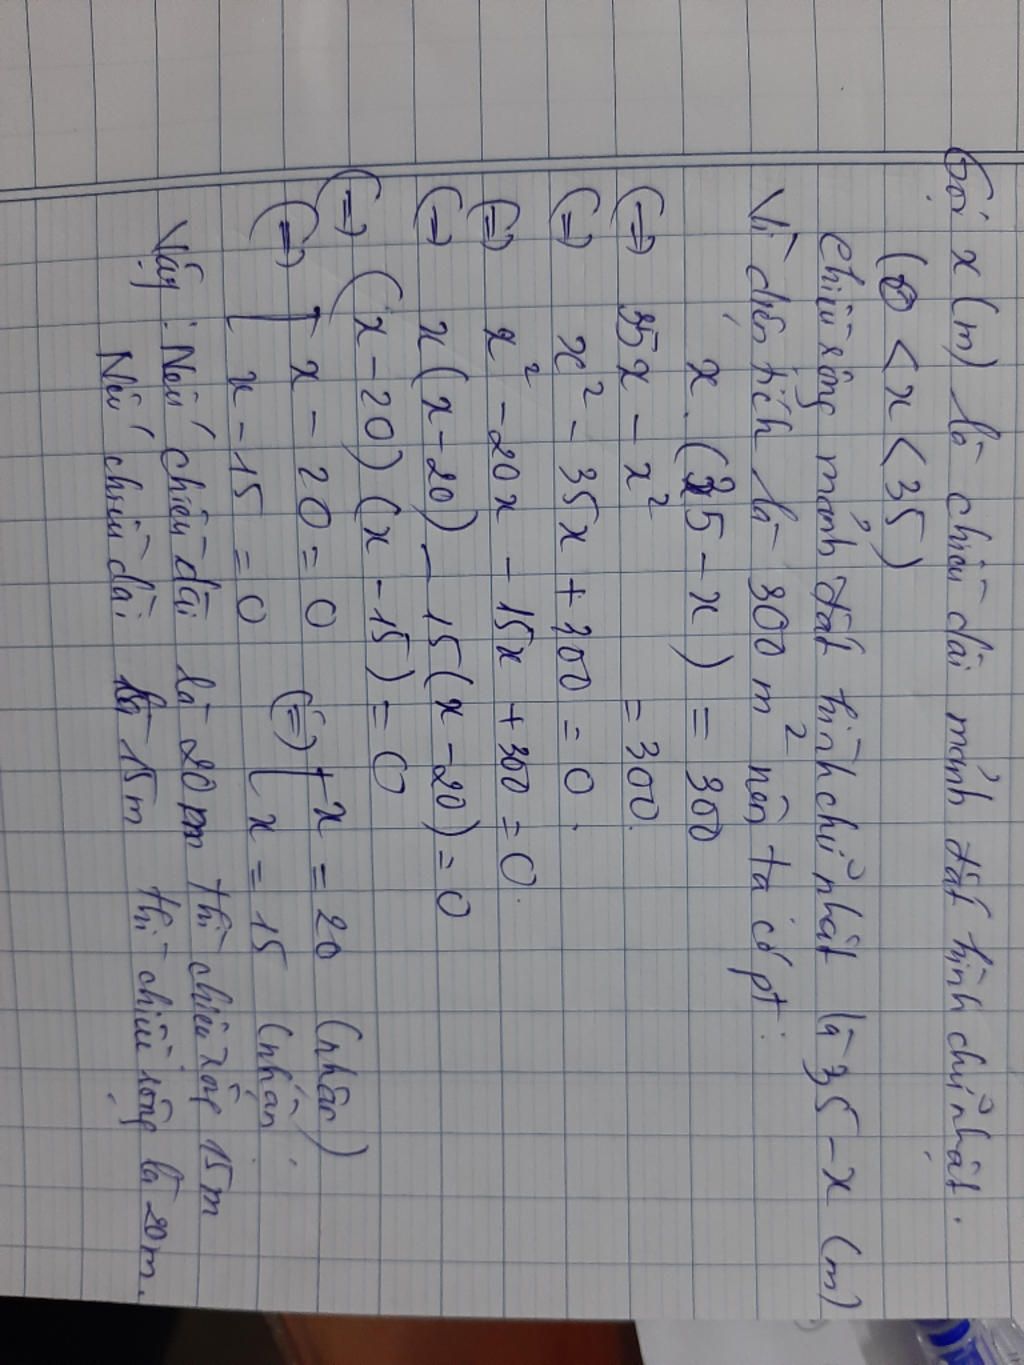 Gọi x (m) là chiều dài mảnh đất hình chữ nhật.
(0 < x < 35)
chiều rộng mảnh đất hình chữ nhật là 35 - x (m)
Vì diện tích là 300 m² nên ta có pt:
x. (35 - x) = 300
(=) 35x - x² = 300.
(=) x² - 35x + 300 = 0.
(=) x² - 20x - 15x + 300 = 0.
(=) x(x - 20) - 15(x - 20) = 0
(=) (x - 20)(x - 15) = 0
(=) [ x - 20 = 0 (=) [ x = 20 (nhận)
x - 15 = 0 x = 15 (nhận)
Vậy: Nếu chiều dài là 20m thì chiều rộng 15m
Nếu chiều dài là 15m thì chiều rộng là 20m.